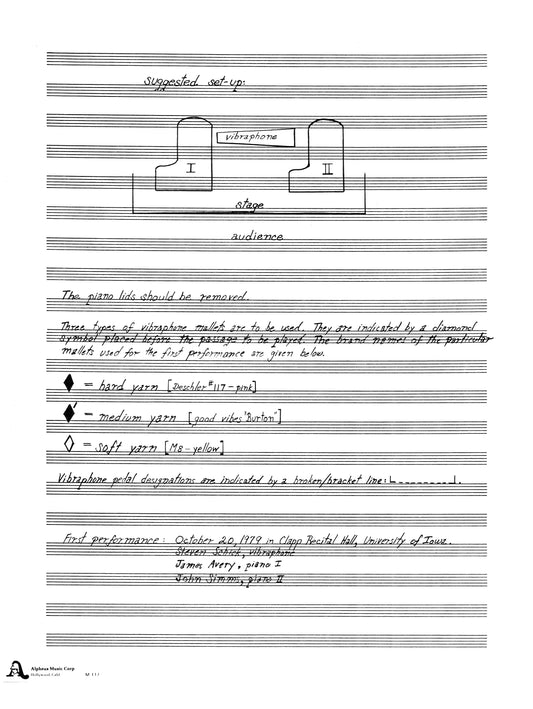 suggested set-up:
vibraphone
I
II
stage
audience
The piano lids should be removed.
Three types of vibraphone mallets are to be used. They are indicated by a diamond
symbol placed before the passage to be played. The brand names of the particular
mallets used for the first performance are given below.
= hard yarn [Deschler #117 - pink]
= medium yarn [good vibes "Burton"]
= soft yarn [M8 - yellow]
Vibraphone pedal designations are indicated by a broken/bracket line: .
First performance: October 20, 1979 in Clapp Recital Hall, University of Iowa.
Steven Schick, vibraphone
James Avery, piano I
John Simms, piano II
Alpheus Music Corp
Hollywood, Calif